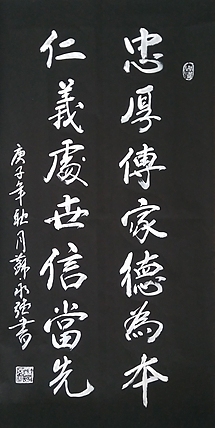 忠厚傳家德為本
仁義處世信當先
庚子年秋月薛永強書